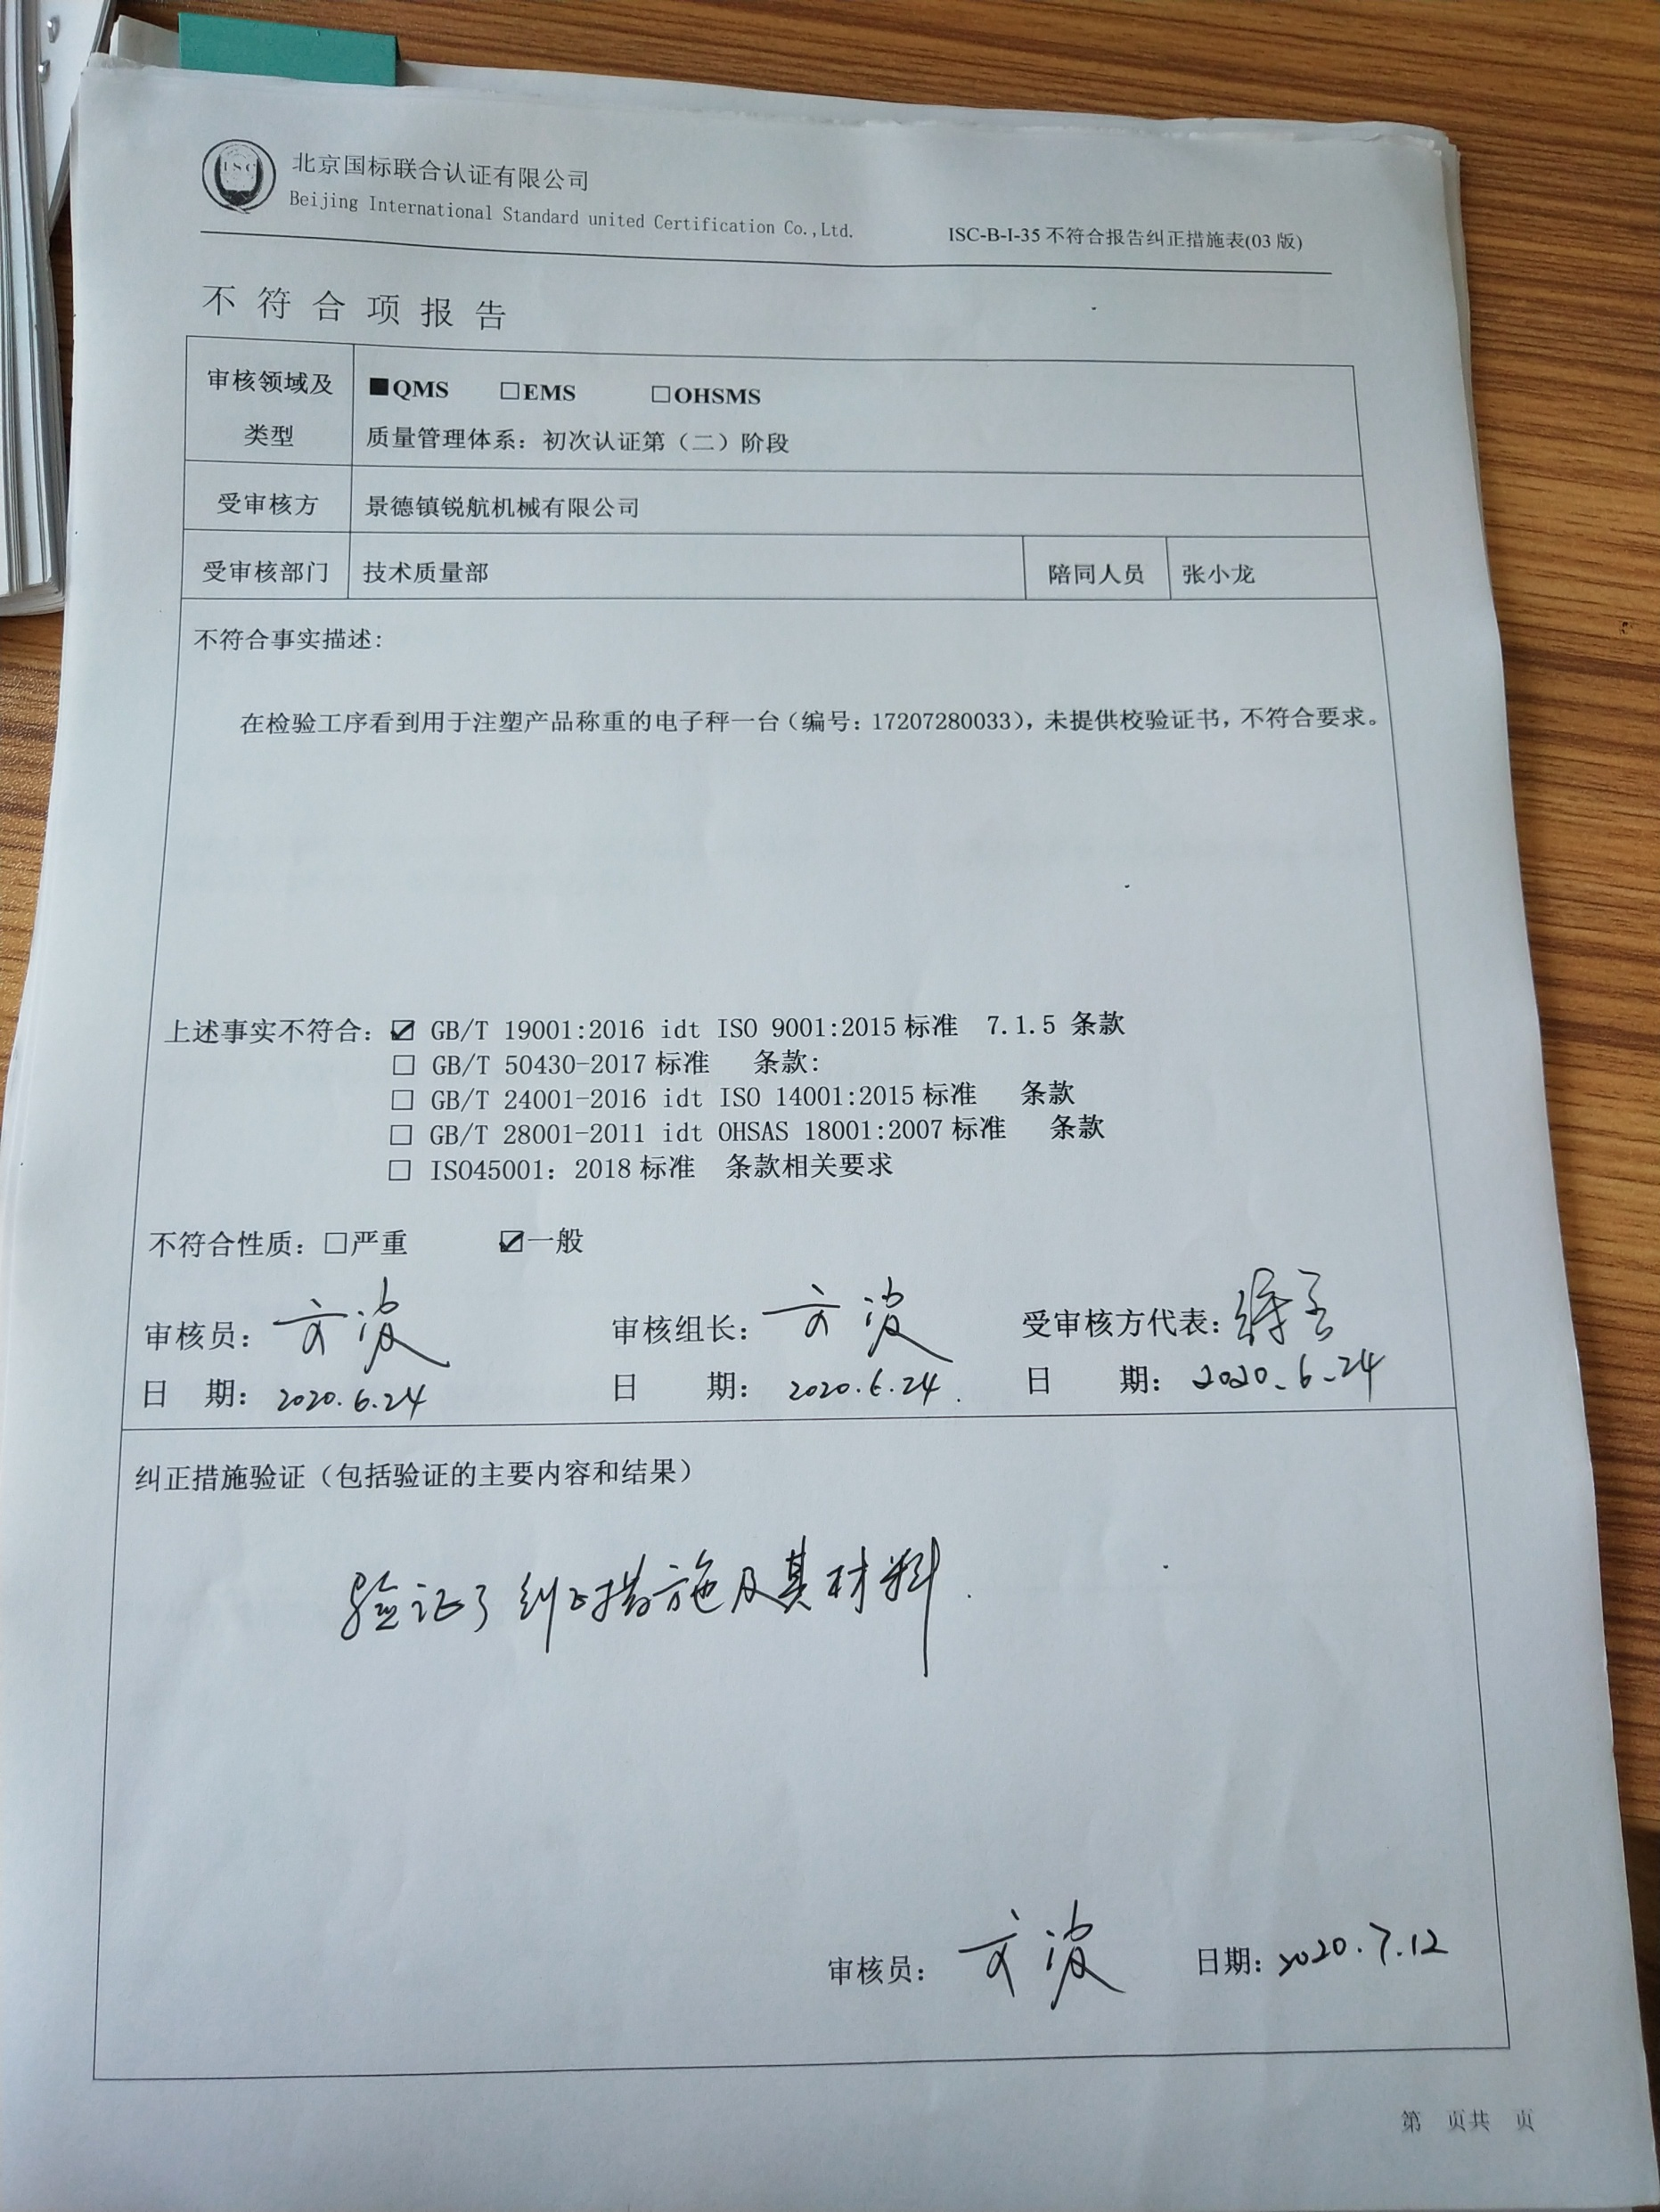 ISC
北京国标联合认证有限公司
Beijing International Standard united Certification Co.,Ltd.
ISC-B-I-35 不符合报告纠正措施表(03 版)
不符合项报告
审核领域及类型
■QMS □EMS □OHSMS
质量管理体系：初次认证第（二）阶段
受审核方 景德镇锐航机械有限公司
受审核部门 技术质量部 陪同人员 张小龙
不符合事实描述：
在检验工序看到用于注塑产品称重的电子秤一台（编号：17207280033），未提供校验证书，不符合要求。
上述事实不符合：☑ GB/T 19001:2016 idt ISO 9001:2015 标准 7.1.5 条款
□ GB/T 50430-2017 标准 条款：
□ GB/T 24001-2016 idt ISO 14001:2015 标准 条款
□ GB/T 28001-2011 idt OHSAS 18001:2007 标准 条款
□ ISO45001：2018 标准 条款相关要求
不符合性质：□严重 ☑一般
审核员： 文波 审核组长： 文波 受审核方代表：
日 期：2020.6.24 日 期：2020.6.24. 日 期：2020.6.24
纠正措施验证（包括验证的主要内容和结果）
验证了纠正措施及其材料.
审核员： 文波 日期：2020.7.12
第 页共 页